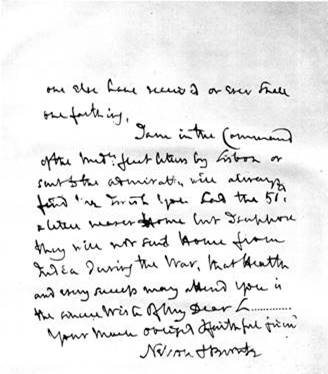 one else have received or ever shall
one farthing.
I am in the Command
of the Medn: sent letters by Lisbon or
sent to the admiralty will always
find me I wish you had the 51.
a little nearer home but I suppose
they will not send Home from
India During the War, that Health
and every success may attend you is
the sincere Wish Of My Dear L.............
Your Much obliged & faithful friend
Nelson & Bronte